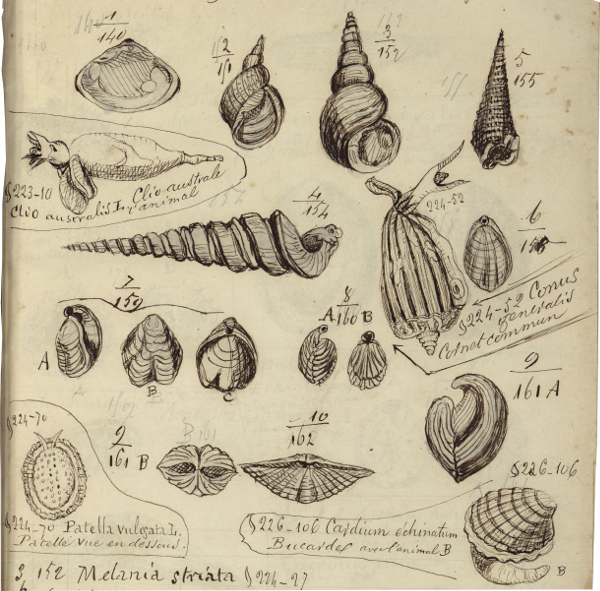 1
140
2
151
3
152
5
155
§223-10
Clio australe
Clio australis L. animal
4
154
224-52
6
§224-52 Conus
generalis
Cornet commun
7
159
A
B
C
8
A 160 B
9
161 A
§224-70
9
161 B
B 161
10
162
§226-106
§224-70 Patella vulgata L.
Patelle vue en dessous.
§226-106 Cardium echinatum
Bucardes avec l'animal B
B
3, 152 Melania striata §224-27